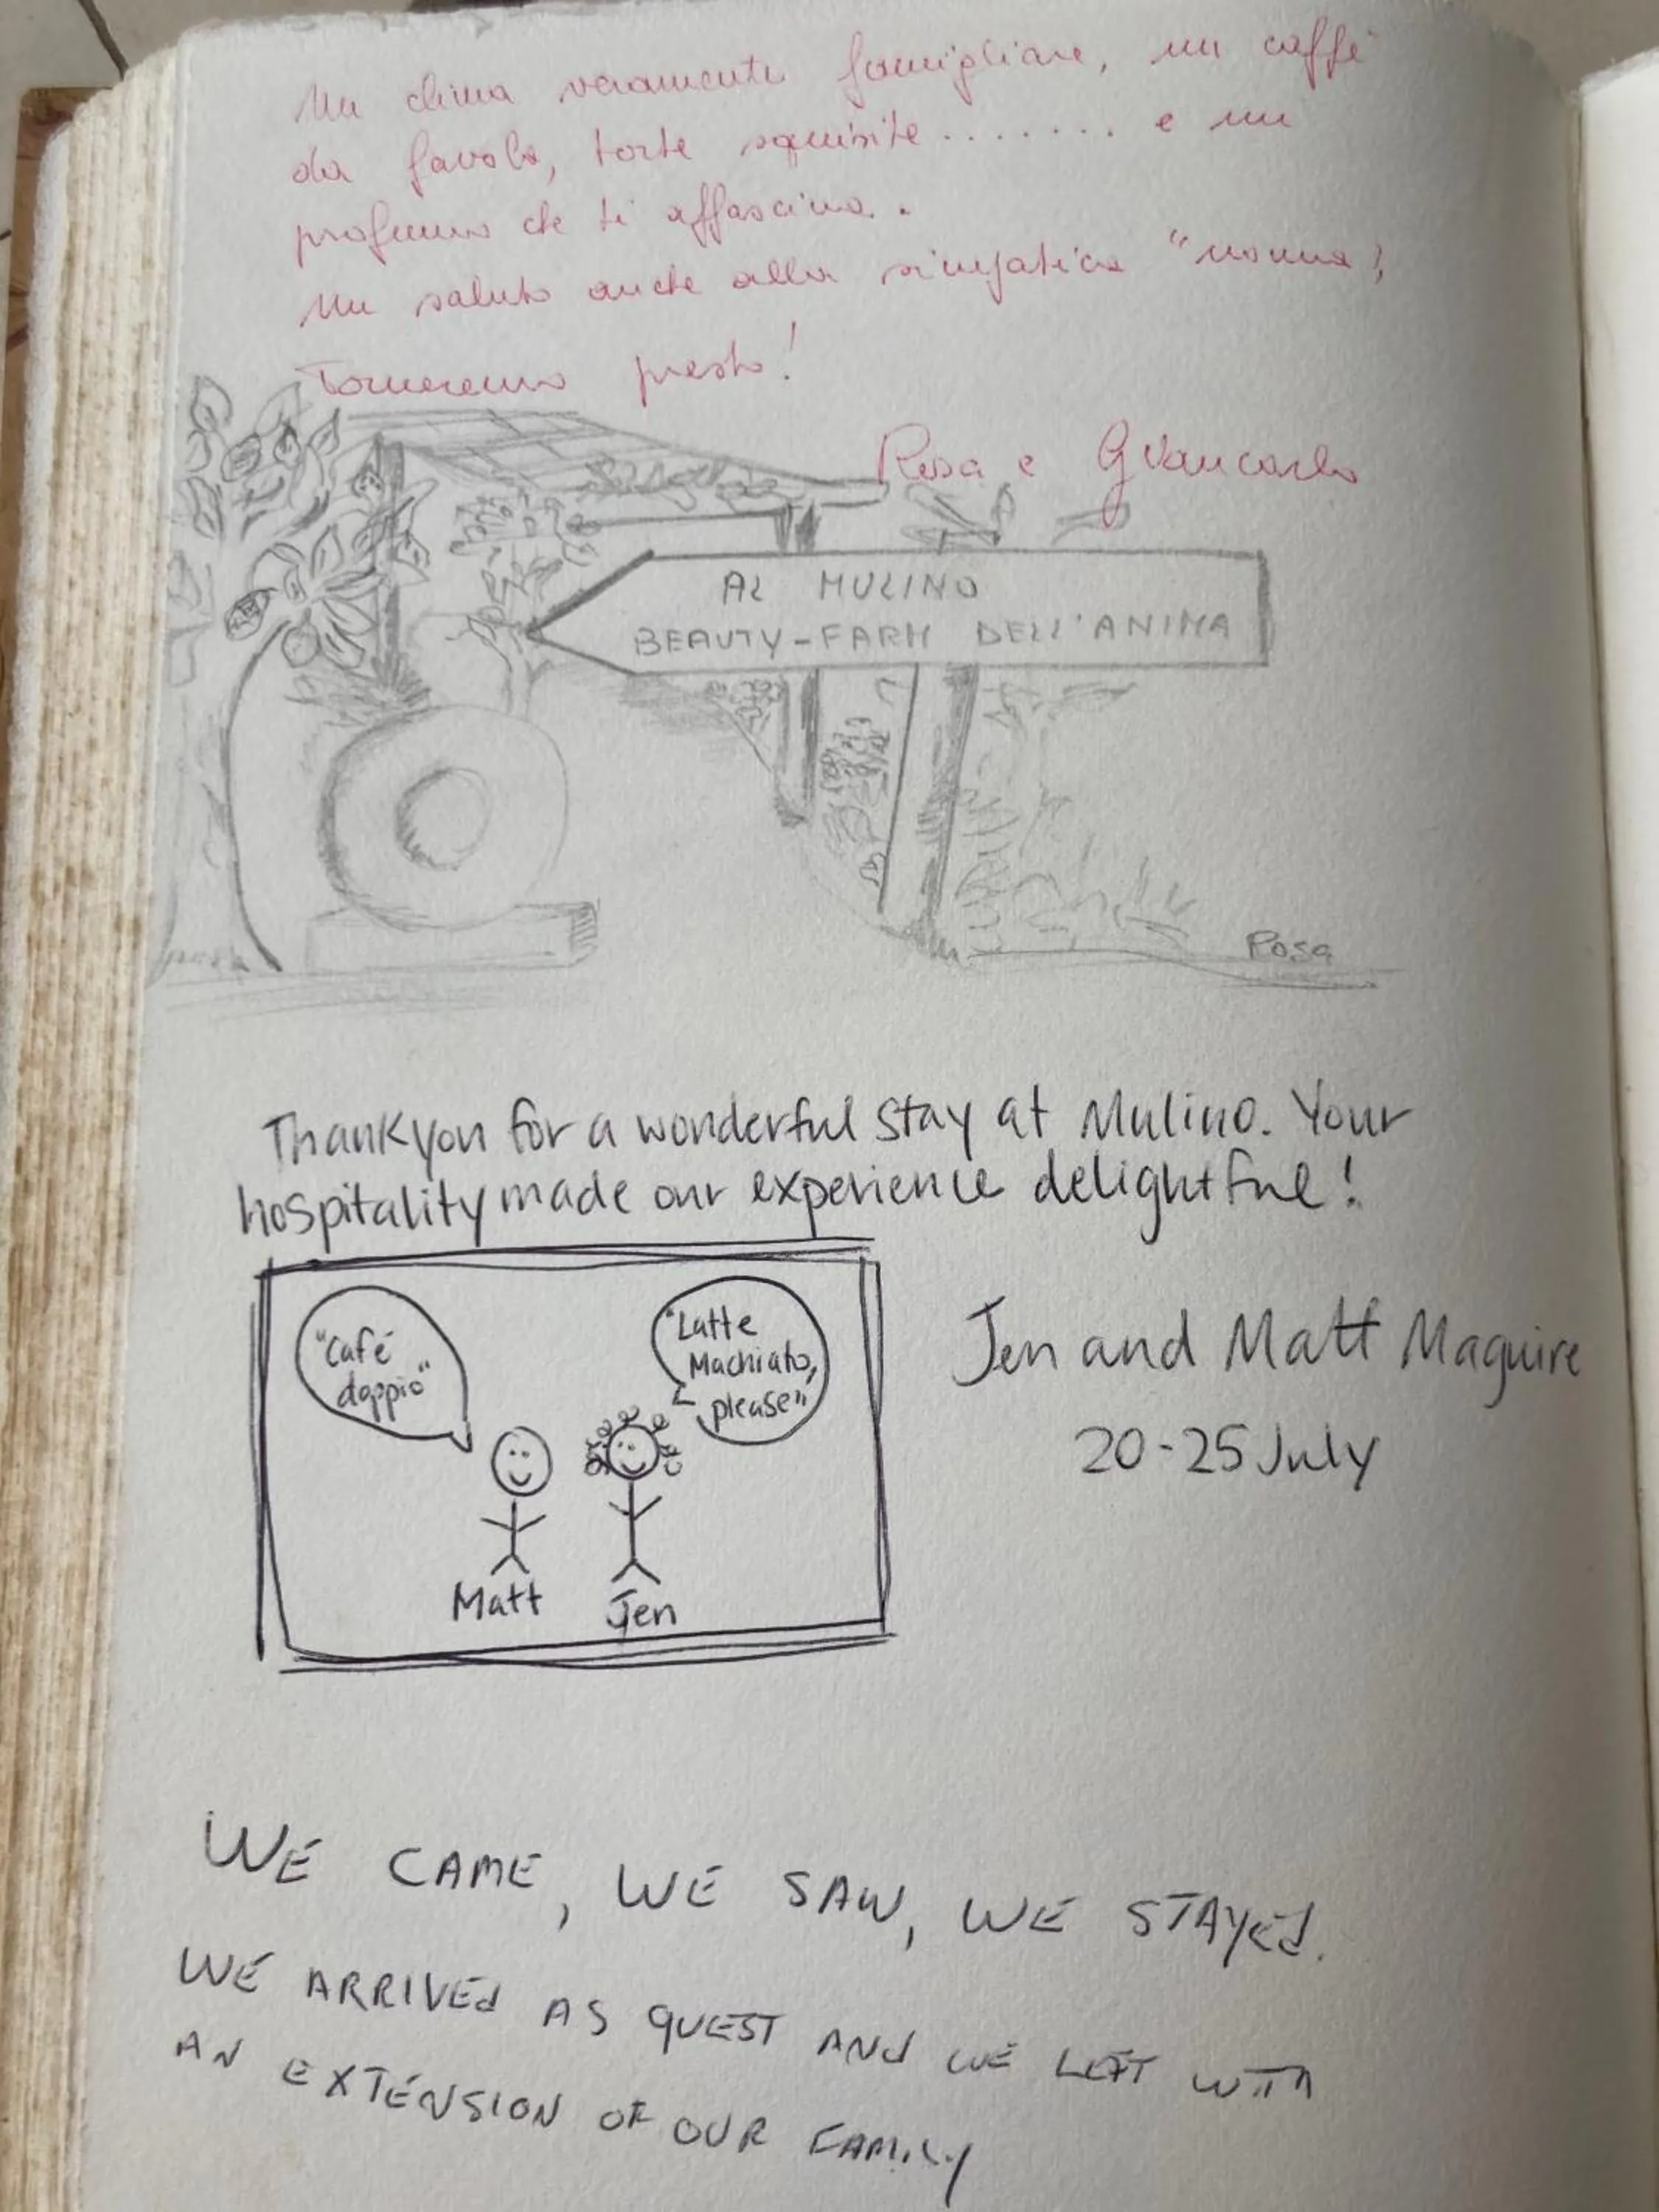 Un clima veramente famigliare, un caffè
da favola, torte squisite ........ e un
profumo che ti affascina.
Un saluto anche alla simpatica "nonna",
Torneremo presto!
Rosa e Giancarlo
AL MULINO
BEAUTY-FARM DELL'ANIMA
Rosa
Thank you for a wonderful stay at Mulino. Your
hospitality made our experience delightful!
"Café
doppio"
"Latte
Machiato,
please"
Matt
Jen
Jen and Matt Maguire
20-25 July
WE CAME, WE SAW, WE STAYEd.
WE ARRIVEd AS QUEST ANd WE LEFT WITH
AN EXTENSION OF OUR FAMILY